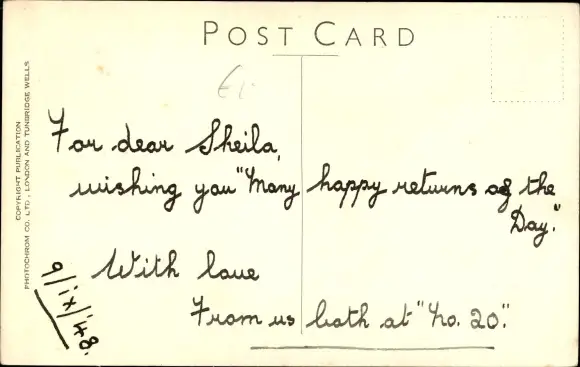 POST CARD
COPYRIGHT PUBLICATION
PHOTOCHROM CO. LTD., LONDON AND TUNBRIDGE WELLS
For dear Sheila,
wishing you "Many happy returns of the
Day."
With love
From us both at "No. 20".
9/ix/'48.